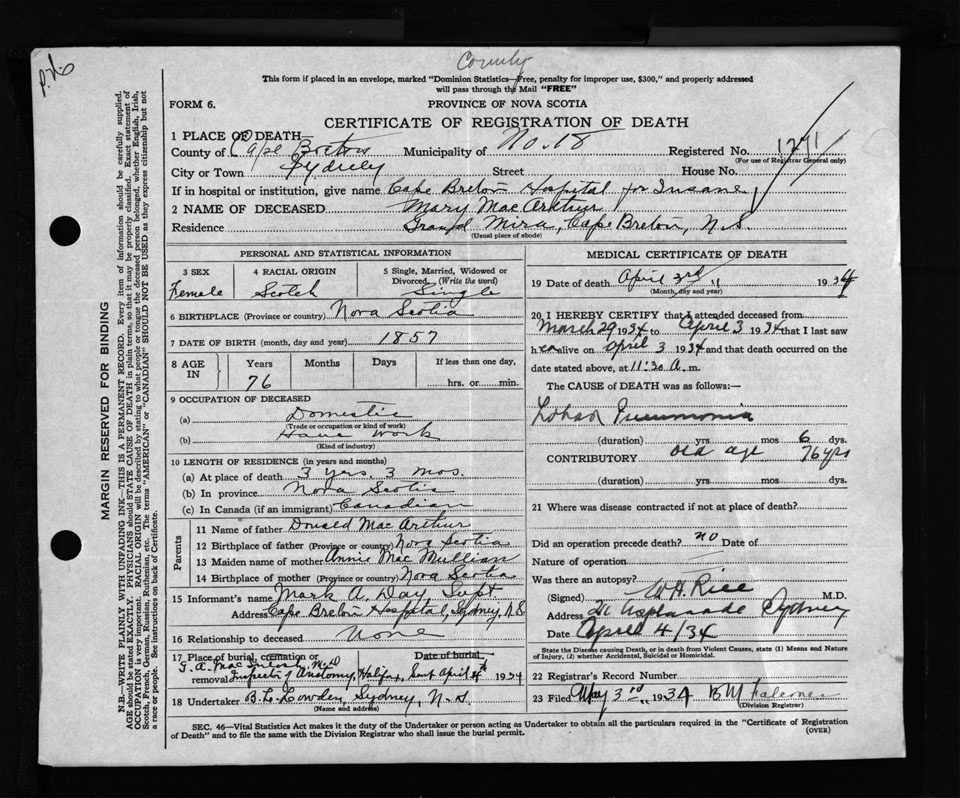 County
P.N.S
This form if placed in an envelope, marked "Dominion Statistics—Free, penalty for improper use, $300," and properly addressed
will pass through the Mail "FREE"
FORM 6.
PROVINCE OF NOVA SCOTIA
CERTIFICATE OF REGISTRATION OF DEATH
1 PLACE OF DEATH—
County of Cape Breton Municipality of No. 18 Registered No. 1271
(For use of Registrar General only)
City or Town Sydney Street House No.
If in hospital or institution, give name Cape Breton Hospital for Insane
2 NAME OF DECEASED Mary MacArthur
Residence Grand Mira, Cape Breton, N.S.
(Usual place of abode)
PERSONAL AND STATISTICAL INFORMATION
3 SEX
Female
4 RACIAL ORIGIN
Scotch
5 Single, Married, Widowed or
Divorced, (Write the word)
Single
6 BIRTHPLACE (Province or country) Nova Scotia
7 DATE OF BIRTH (month, day and year) 1857
8 AGE IN
Years
76
Months
Days
If less than one day,
hrs. or min.
9 OCCUPATION OF DECEASED
(a) Domestic
(Trade or occupation or kind of work)
(b) House Work
(Kind of industry)
10 LENGTH OF RESIDENCE (in years and months)
(a) At place of death 3 yrs 3 mos.
(b) In province Nova Scotia
(c) In Canada (if an immigrant) Canadian
Parents
11 Name of father Donald MacArthur
12 Birthplace of father (Province or country) Nova Scotia
13 Maiden name of mother Annie MacMullian
14 Birthplace of mother (Province or country) Nova Scotia
15 Informant's name Mark A. Day, Supt
Address Cape Breton Hospital, Sydney, N.S
16 Relationship to deceased None
17 Place of burial, cremation or Date of burial,
F. A. MacIntosh, M.D
removal Inspector of Anatomy, Halifax, Sent April 4th 1934
18 Undertaker B. L. Lowden, Sydney, N.S.
(Name and address)
MEDICAL CERTIFICATE OF DEATH
19 Date of death April 3rd " 1934
(Month, day and year)
20 I HEREBY CERTIFY that I attended deceased from
March 29 1934 to April 3 1934 that I last saw
her alive on April 3 1934 and that death occurred on the
date stated above, at 11.30 A.m.
The CAUSE OF DEATH was as follows:—
Lobar Pneumonia
(duration) yrs mos 6 dys.
CONTRIBUTORY old age 76 yrs
(duration) yrs. mos dys.
21 Where was disease contracted if not at place of death?
Did an operation precede death? no Date of
Nature of operation
Was there an autopsy?
(Signed) W H Rice M.D.
Address Esplanade Sydney
Date April 4/34
State the Disease causing Death, or in death from Violent Causes, state (1) Means and
Nature of Injury, (2) whether Accidental, Suicidal or Homicidal.
22 Registrar's Record Number
23 Filed May 3rd " 1934 B M Falconer
(Division Registrar)
SEC. 46—Vital Statistics Act makes it the duty of the Undertaker or person acting as Undertaker to obtain all the particulars required in the "Certificate of Registration
of Death" and to file the same with the Division Registrar who shall issue the burial permit.
(OVER)
MARGIN RESERVED FOR BINDING
N.B.—WRITE PLAINLY WITH UNFADING INK—THIS IS A PERMANENT RECORD. Every item of information should be carefully supplied.
AGE should be stated EXACTLY. PHYSICIANS should STATE CAUSE OF DEATH in plain terms, so that it may be properly classified. Exact statement of
OCCUPATION is very important. RACIAL ORIGIN will be described by stating to what people or tongue the deceased person belonged, whether English, Irish,
Scotch, French, German, Russian, Ruthenian, etc. The terms "AMERICAN" or "CANADIAN" SHOULD NOT BE USED as they express citizenship but not
a race or people. See instructions on back of Certificate.